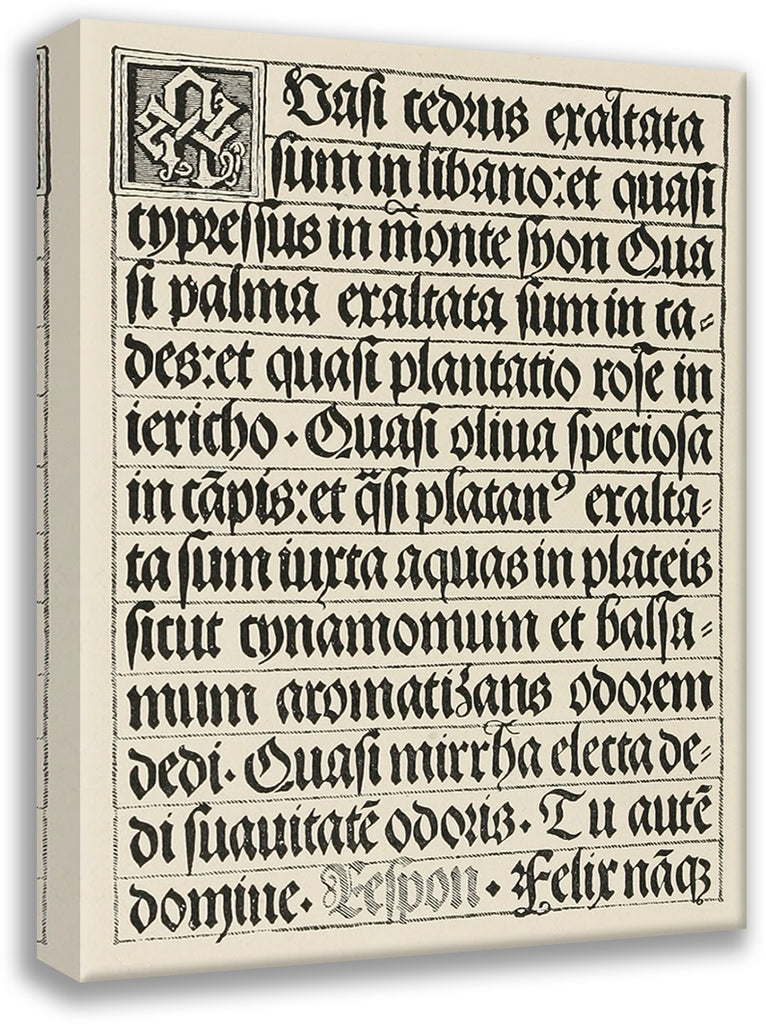 Quasi cedrus exaltata
sum in libano: et quasi
cypressus in monte syon Qua
si palma exaltata sum in ca=
des: et quasi plantatio rose in
iericho. Quasi oliua speciosa
in cãpis: et q̃si platanꝰ exalta=
ta sum iuxta aquas in plateis
sicut cynamomum et balsa=
mum aromatizans odorem
dedi. Quasi mirrha electa de=
di suauitatẽ odoris. Tu autẽ
domine. Respon. Felix nãqꝫ